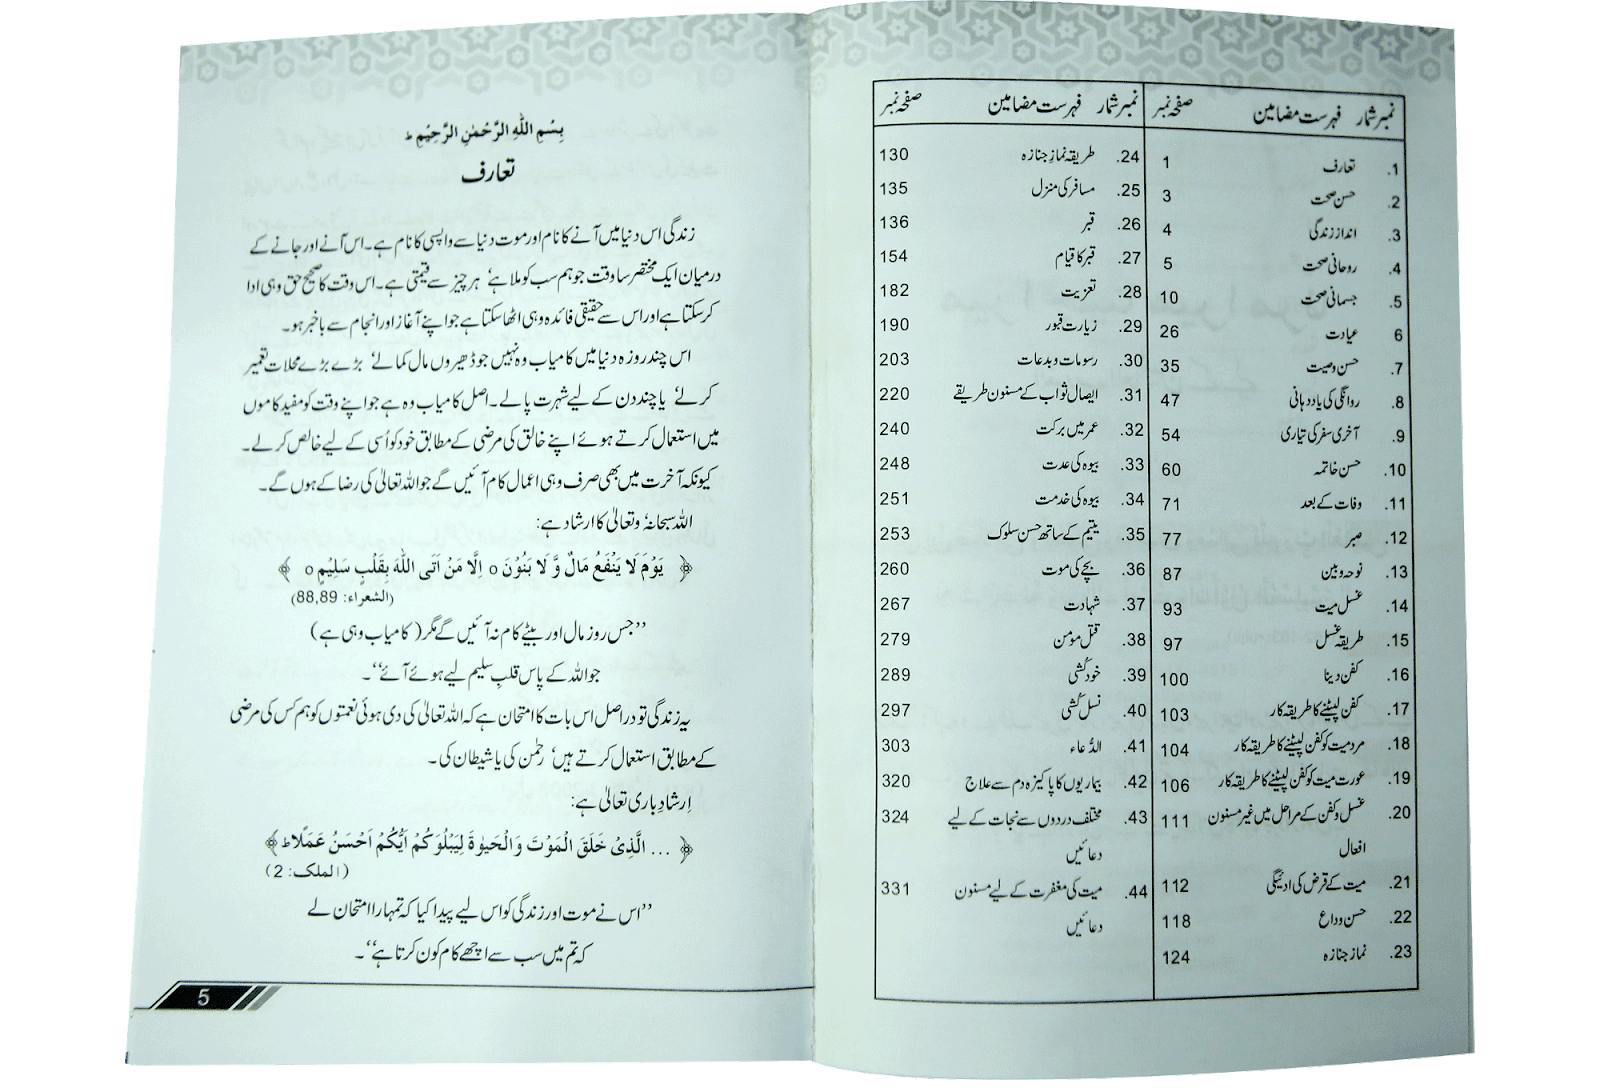 نمبر شمار فہرست مضامین صفحہ نمبر
1. تعارف 1
2. حسن صحت 3
3. انداز زندگی 4
4. روحانی صحت 5
5. جسمانی صحت 10
6 عیادت 26
7. حسن وصیت 35
8. روانگی کی یاد دہانی 47
9. آخری سفر کی تیاری 54
10. حسن خاتمہ 60
11. وفات کے بعد 71
12. صبر 77
13. نوحہ و بین 87
14. غسل میت 93
15. طریقہ غسل 97
16. کفن دینا 100
17. کفن لپیٹنے کا طریقہ کار 103
18. مرد میت کو کفن لپیٹنے کا طریقہ کار 104
19. عورت میت کو کفن لپیٹنے کا طریقہ کار 106
20. غسل و کفن کے مراحل میں غیر مسنون 111
افعال
21. میت کے قرض کی ادئیگی 112
22. حسن وداع 118
23. نماز جنازہ 124
نمبر شمار فہرست مضامین صفحہ نمبر
24. طریقہ نمازِ جنازہ 130
25. مسافر کی منزل 135
26. قبر 136
27. قبر کا قیام 154
28. تعزیت 182
29. زیارت قبور 190
30. رسومات و بدعات 203
31. ایصال ثواب کے مسنون طریقے 220
32. عمر میں برکت 240
33. بیوہ کی عدت 248
34. بیوہ کی خدمت 251
35. یتیم کے ساتھ حسن سلوک 253
36. بچے کی موت 260
37. شہادت 267
38. قتل مومن 279
39. خودکُشی 289
40. نسل کُشی 297
41. الدُّعاء 303
42. بیماریوں کا پاکیزہ دم سے علاج 320
43. مختلف دردوں سے نجات کے لیے 324
دعائیں
44. میت کی مغفرت کے لیے مسنون 331
دعائیں
بِسْمِ اللّٰهِ الرَّحْمٰنِ الرَّحِيْمِ ط
تعارف
زندگی اس دنیا میں آنے کا نام اور موت دنیا سے واپسی کا نام ہے۔ اس آنے اور جانے کے
درمیان ایک مختصر سا وقت جو ہم سب کو ملا ہے، ہر چیز سے قیمتی ہے۔ اس وقت کا صحیح حق وہی ادا
کر سکتا ہے اور اس سے حقیقی فائدہ وہی اٹھا سکتا ہے جو اپنے آغاز اور انجام سے باخبر ہو۔
اس چند روزہ دنیا میں کامیاب وہ نہیں جو ڈھیروں مال کمالے، بڑے بڑے محلات تعمیر
کرلے، یا چند دن کے لیے شہرت پالے۔ اصل کامیاب وہ ہے جو اپنے وقت کو مفید کاموں
میں استعمال کرتے ہوئے اپنے خالق کی مرضی کے مطابق خود کو اُسی کے لیے خالص کرلے۔
کیونکہ آخرت میں بھی صرف وہی اعمال کام آئیں گے جو اللہ تعالیٰ کی رضا کے ہوں گے۔
اللہ سبحانہٗ وتعالیٰ کا ارشاد ہے:
﴿ يَوْمَ لَا يَنْفَعُ مَالٌ وَّ لَا بَنُوْنَ o اِلَّا مَنْ اَتَى اللّٰهَ بِقَلْبٍ سَلِيْمٍ o ﴾
(الشعراء: 88,89)
’’جس روز مال اور بیٹے کام نہ آئیں گے مگر (کامیاب وہی ہے)
جو اللہ کے پاس قلبِ سلیم لیے ہوئے آئے‘‘۔
یہ زندگی تو دراصل اس بات کا امتحان ہے کہ اللہ تعالیٰ کی دی ہوئی نعمتوں کو ہم کس کی مرضی
کے مطابق استعمال کرتے ہیں، رحمٰن کی یا شیطان کی۔
اِرشادِ باری تعالیٰ ہے:
﴿ ... الَّذِیْ خَلَقَ الْمَوْتَ وَالْحَیٰوةَ لِیَبْلُوَکُمْ اَیُّکُمْ اَحْسَنُ عَمَلًا ط﴾
(الملک: 2)
’’اس نے موت اور زندگی کو اس لیے پیدا کیا کہ تمہارا امتحان لے
کہ تم میں سب سے اچھے کام کون کرتا ہے‘‘۔
5